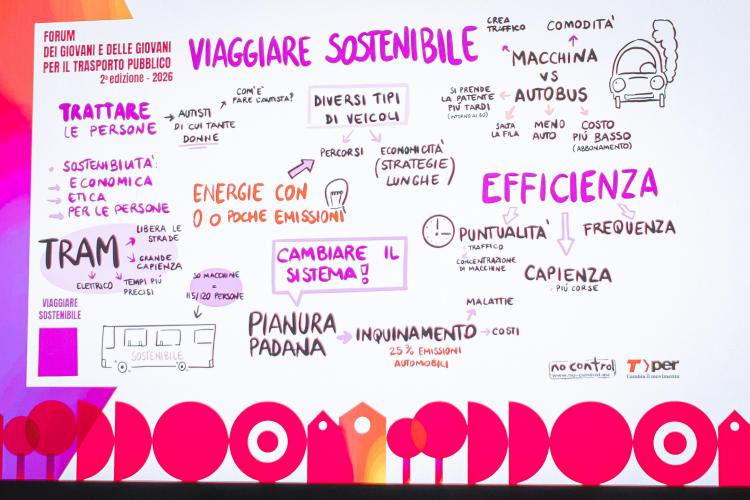 FORUM
DEI GIOVANI E DELLE GIOVANI
PER IL TRASPORTO PUBBLICO
2ª edizione - 2026
VIAGGIARE SOSTENIBILE
CREA
TRAFFICO
COMODITA'
MACCHINA
VS
AUTOBUS
SI PRENDE
LA PATENTE
PIÙ TARDI
SALTA
LA FILA
MENO
AUTO
COSTO
PIÙ BASSO
(ABBONAMENTO)
TRATTARE
LE PERSONE
AUTISTI
DI CUI TANTE
DONNE
COM'E'
FARE L'AUTISTA?
DIVERSI TIPI
DI VEICOLI
PERCORSI
ECONOMICITA'
(STRATEGIE)
LUNGHE
• SOSTENIBILITA':
ECONOMICA
ETICA
PER LE PERSONE
ENERGIE CON
0 O POCHE EMISSIONI
EFFICIENZA
PUNTUALITA'
TRAFFICO
CONCENTRAZIONE
DI MACCHINE
CAPIENZA
PIÚ CORSE
FREQUENZA
TRAM
LIBERA LE
STRADE
GRANDE
CAPIENZA
TEMPI PIÚ
PRECISI
ELETTRICO
CAMBIARE IL
SISTEMA!
50 MACCHINE
=
115/120 PERSONE
VIAGGIARE
SOSTENIBILE
SOSTENIBILE
PIANURA
PADANA
INQUINAMENTO
25% EMISSIONI
AUTOMOBILI
MALATTIE
COSTI
no control
www.no-control.eu
T>per
Cambia il movimento